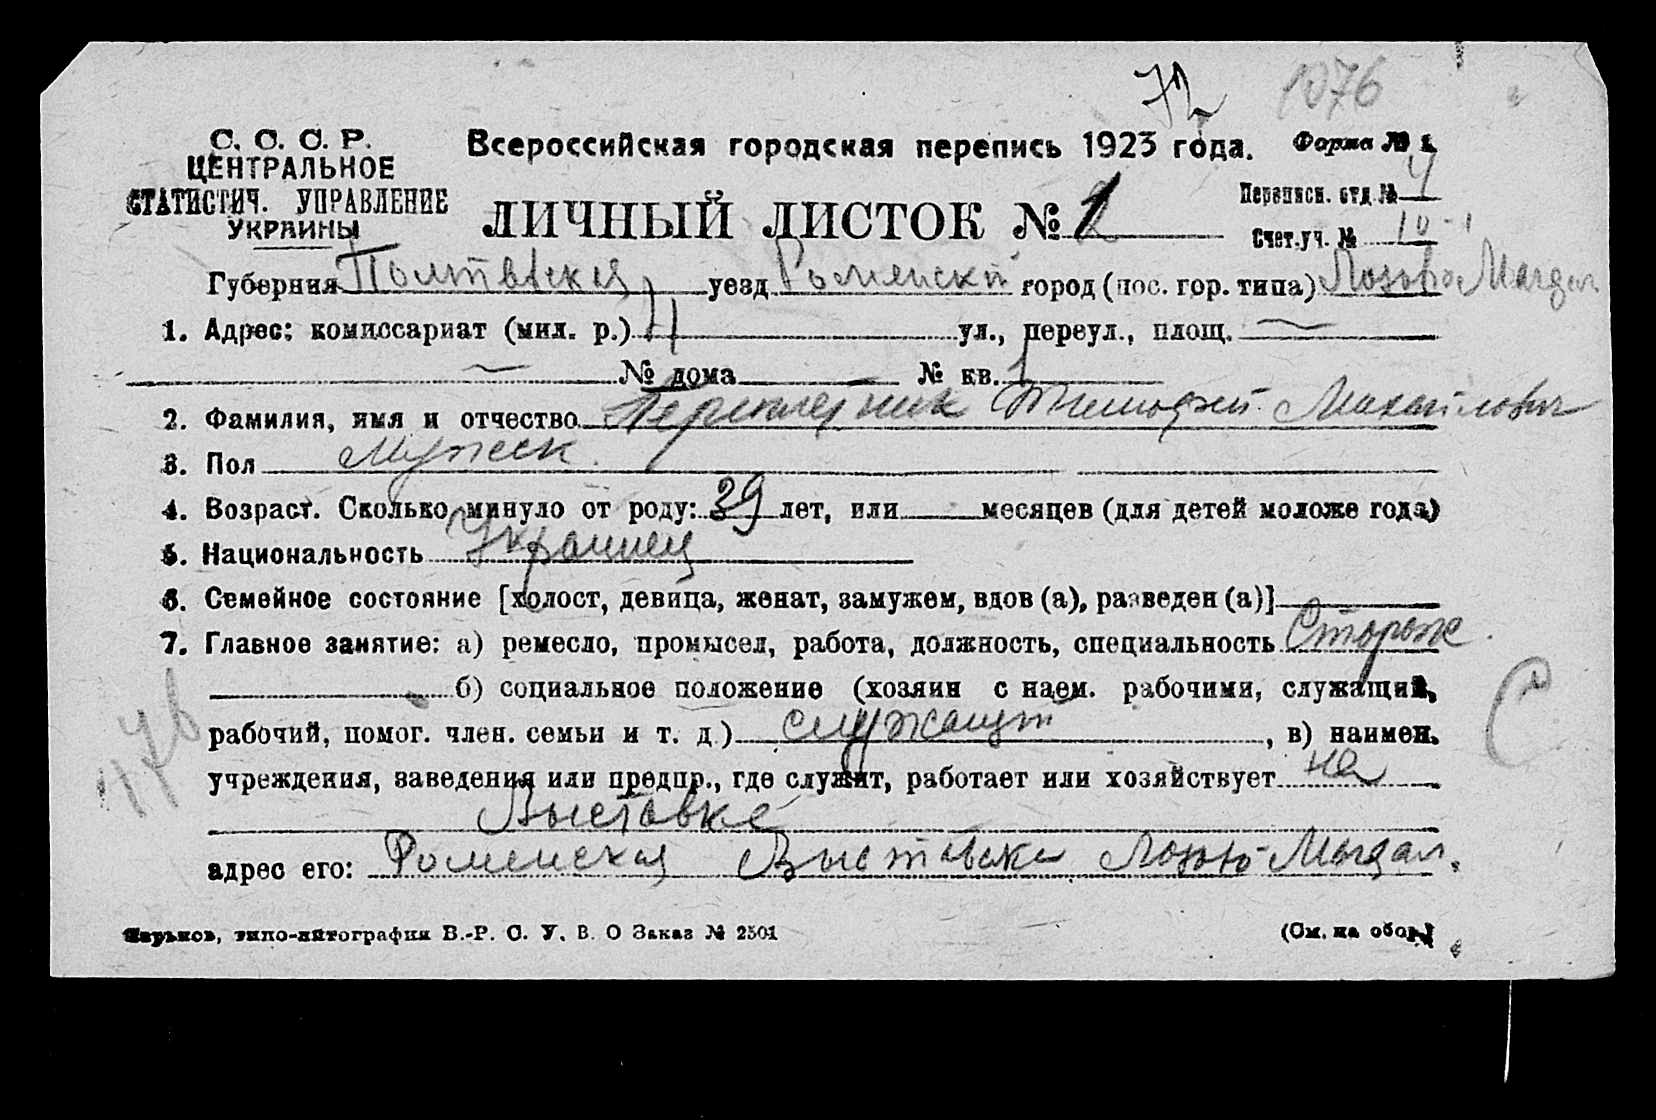 72 1076
С. С. С. Р.
ЦЕНТРАЛЬНОЕ
СТАТИСТИЧ. УПРАВЛЕНИЕ
УКРАИНЫ
Всероссийская городская перепись 1923 года.
Форма № 1.
ЛИЧНЫЙ ЛИСТОК №
Переписн. отд. № 4
Счет. уч. № 10-1
Губерния Полтавская уезд Роменский город (пос. гор. типа) Лозово Магдал
1. Адрес: комиссариат (мил. р.) ул., переул., площ. —
— № дома № кв. 1
2. Фамилия, имя и отчество Тимофей Михайлович
3. Пол Мужеск.
4. Возраст. Сколько минуло от роду: 39 лет, или месяцев (для детей моложе года)
5. Национальность Украинец
6. Семейное состояние [холост, девица, женат, замужем, вдов (а), разведен (а)]
7. Главное занятие: а) ремесло, промысел, работа, должность, специальность Сторож.
б) социальное положение (хозяин с наем. рабочими, служащий,
рабочий, помог. член. семьи и т. д.) служащий, в) наимен.
учреждения, заведения или предпр., где служит, работает или хозяйствует на
Выставке
адрес его: Роменская Выставка Лозово Магдал.
С
Харьков, типо-литография В.-Р. С. У. В. О Заказ № 2501
(См. на обор.)